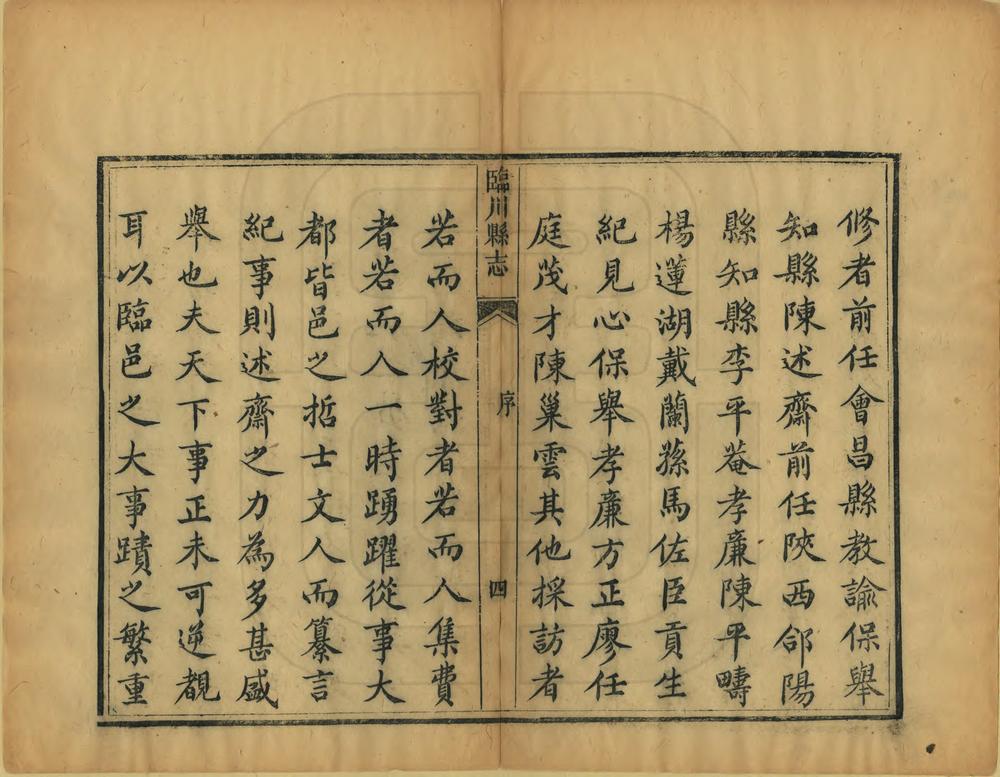 修者前任會昌縣教諭保舉
知縣陳述齋前任陝西郃陽
縣知縣李平菴孝廉陳平疇
楊蓮湖戴蘭蓀馬佐臣貢生
紀見心保舉孝廉方正廖任
庭茂才陳巢雲其他採訪者
臨川縣志
序
四
若而人校對者若而人集費
者若而人一時踴躍從事大
都皆邑之哲士文人而纂言
紀事則述齋之力為多甚盛
舉也夫天下事正未可逆覩
耳以臨邑之大事蹟之繁重